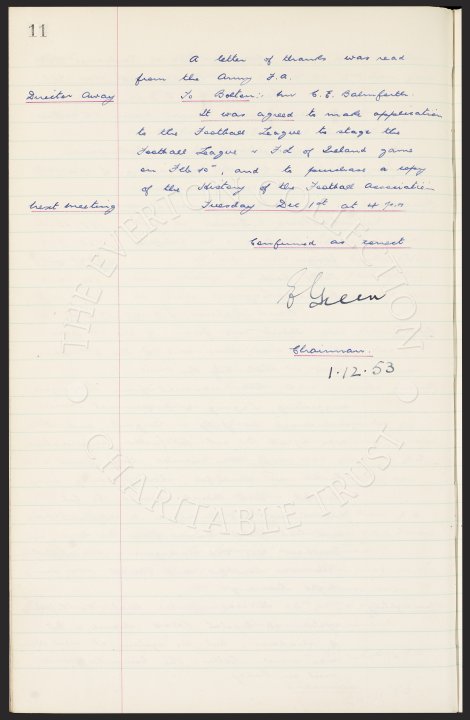 11
A letter of thanks was read
from the Army F.A.
Director Away To Bolton:- Mr C.E. Balmforth.
It was agreed to make application
to the Football League to stage the
Football League v F.L of Ireland game
on Feb 10th, and to purchase a copy
of the History of the Football Association
Next Meeting Tuesday Dec 1st at 4 p.m
Confirmed as correct
E Green
Chairman.
1.12.53
THE EVERTON COLLECTION
CHARITABLE TRUST